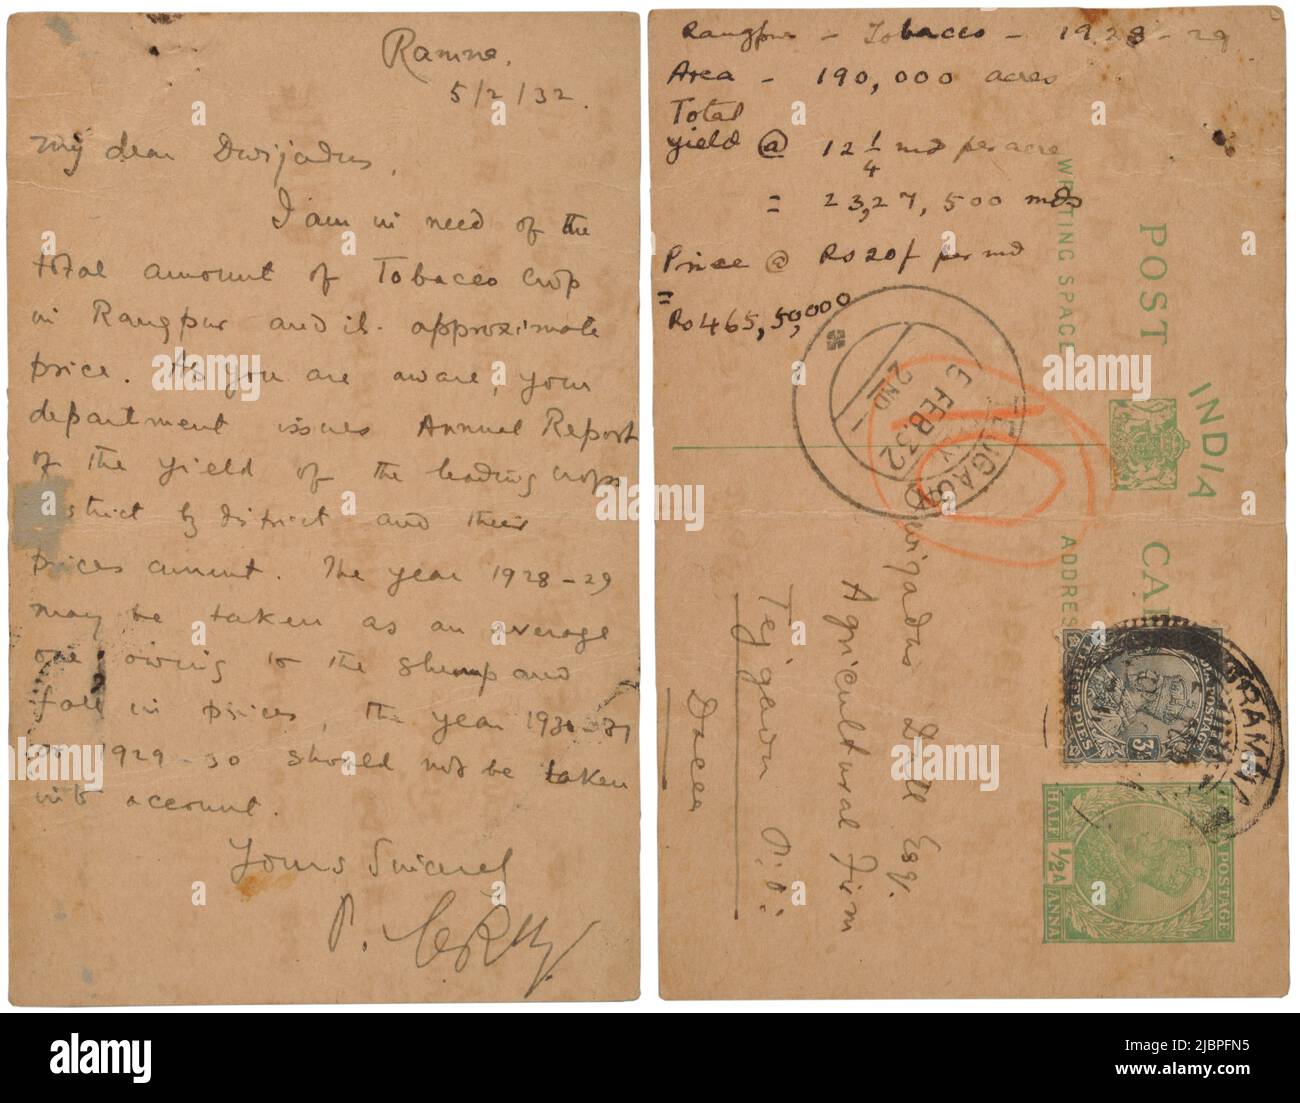 Ramna,
5/2/32.
My dear Dwijadas,
I am in need of the
total amount of Tobacco crop
in Rangpur and its approximate
price. As you are aware, your
department issues Annual Report
of the yield of the leading crops
district by district and their
prices current. The year 1928-29
may be taken as an average
one owing to the slump and
fall in prices, the year 1930-31
or 1929-30 should not be taken
into account.
Yours Sincerely
P. C. Ray
Rangpur - Tobacco - 1928-29
Area - 190,000 acres
Total
yield @ 12 1/4 mds per acre
= 23,27,500 mds
Price @ Rs 20/ per md
=
Rs 465,50,000
WRITING SPACE
POST CA
INDIA
ADDRESS
TEJGAON
2ND
5 FEB.32
Dwijadas Dutt Esq.
Agricultural Firm
Tejgaon P.O.
Dacca
RAMNA
INDIA POSTAGE
3 PS
THREE PIES
INDIA POSTAGE
HALF ANNA
1/2 A
HALF ANNA
alamy
Image ID: 2JBPFN5
www.alamy.com